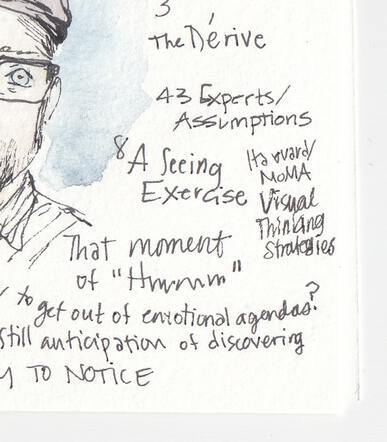 3
The Dérive
43 Experts/
Assumptions
8 A Seeing
Exercise
Harvard/
MoMA
Visual
Thinking
Strategies
That moment
of "Hmmm"
to get out of emotional agendas?
still anticipation of discovering
TO NOTICE